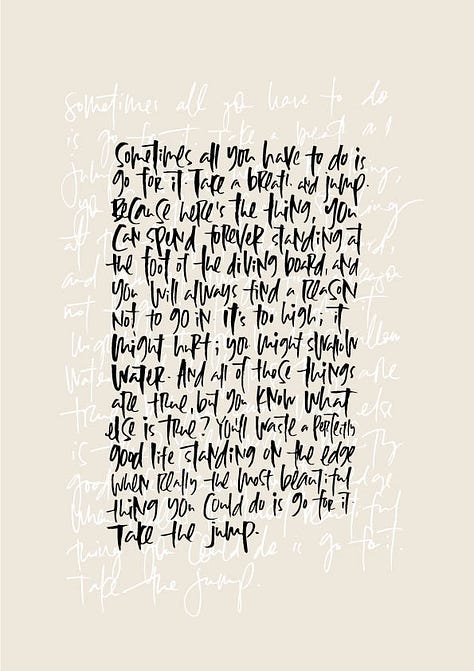 Sometimes all you have to do is
go for it. Take a breath and jump.
Because here's the thing, you
can spend forever standing at
the foot of the diving board, and
you will always find a reason
not to go in. it's too high; it
might hurt; you might swallow
water. And all of those things
are true, but you know what
else is true? You'll waste a perfectly
good life standing on the edge
when really the most beautiful
thing you could do is go for it.
Take the jump.